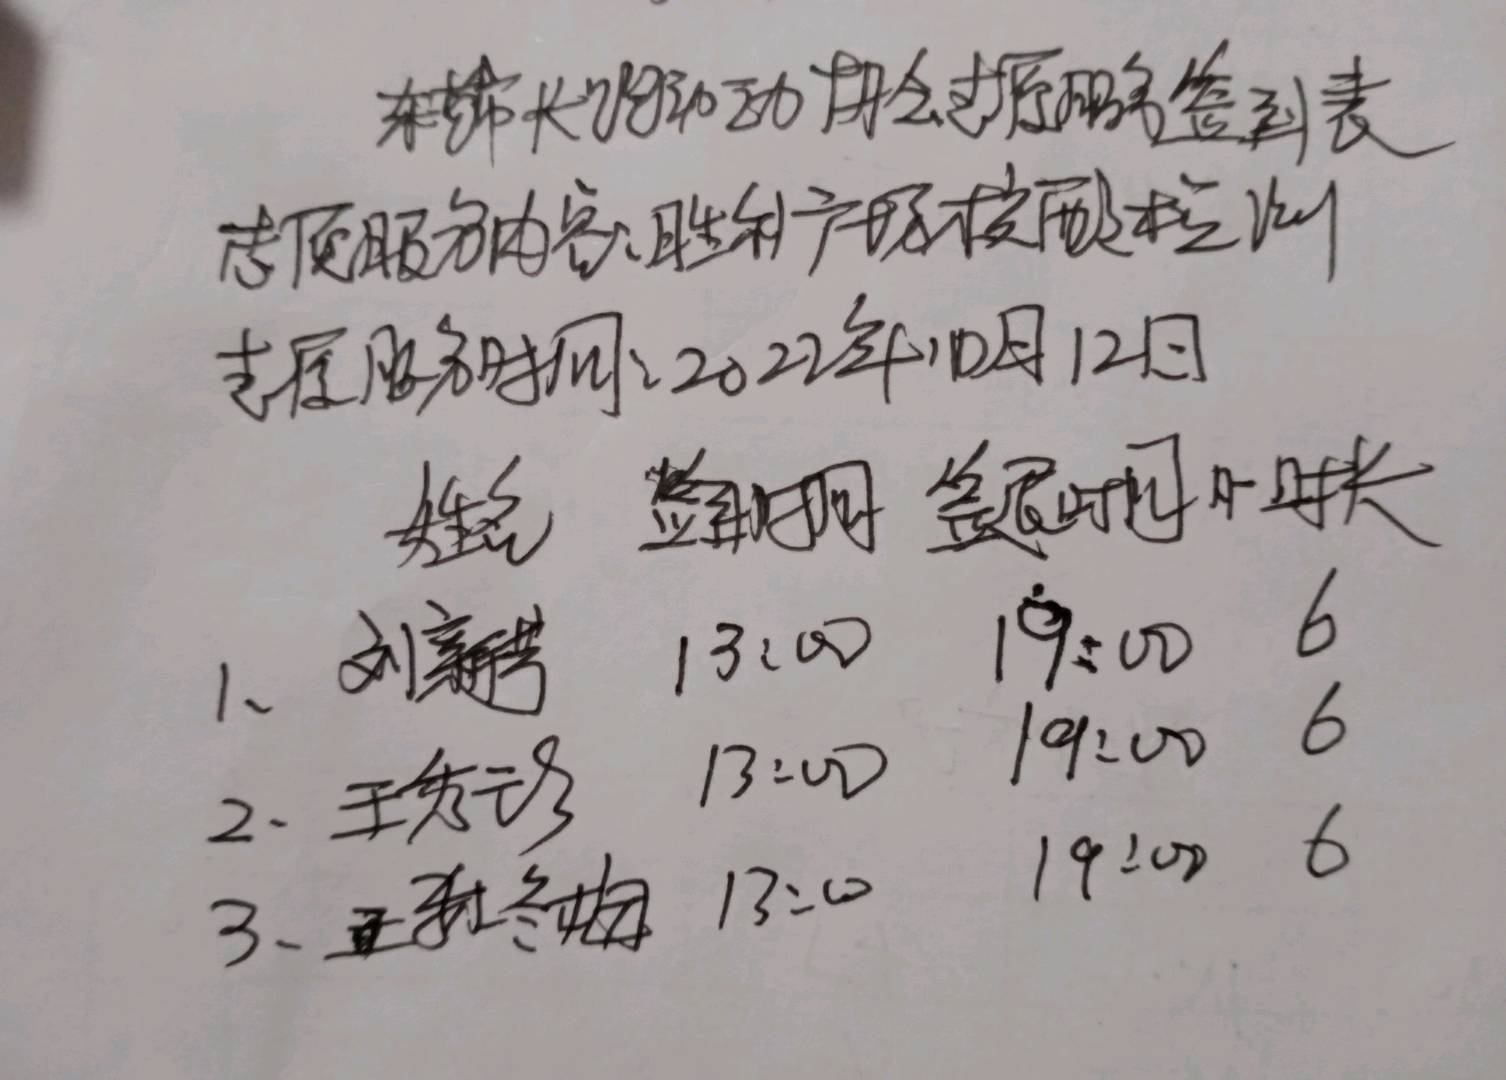 长跑运动协会志愿服务签到表
志愿服务内容:胜利广场核酸检测
志愿服务时间:2022年10月12日
姓名 签到时间 签退时间 小时长
1、刘新 13:00 19:00 6
2、王秀珍 13:00 19:00 6
3、冬梅 13:00 19:00 6